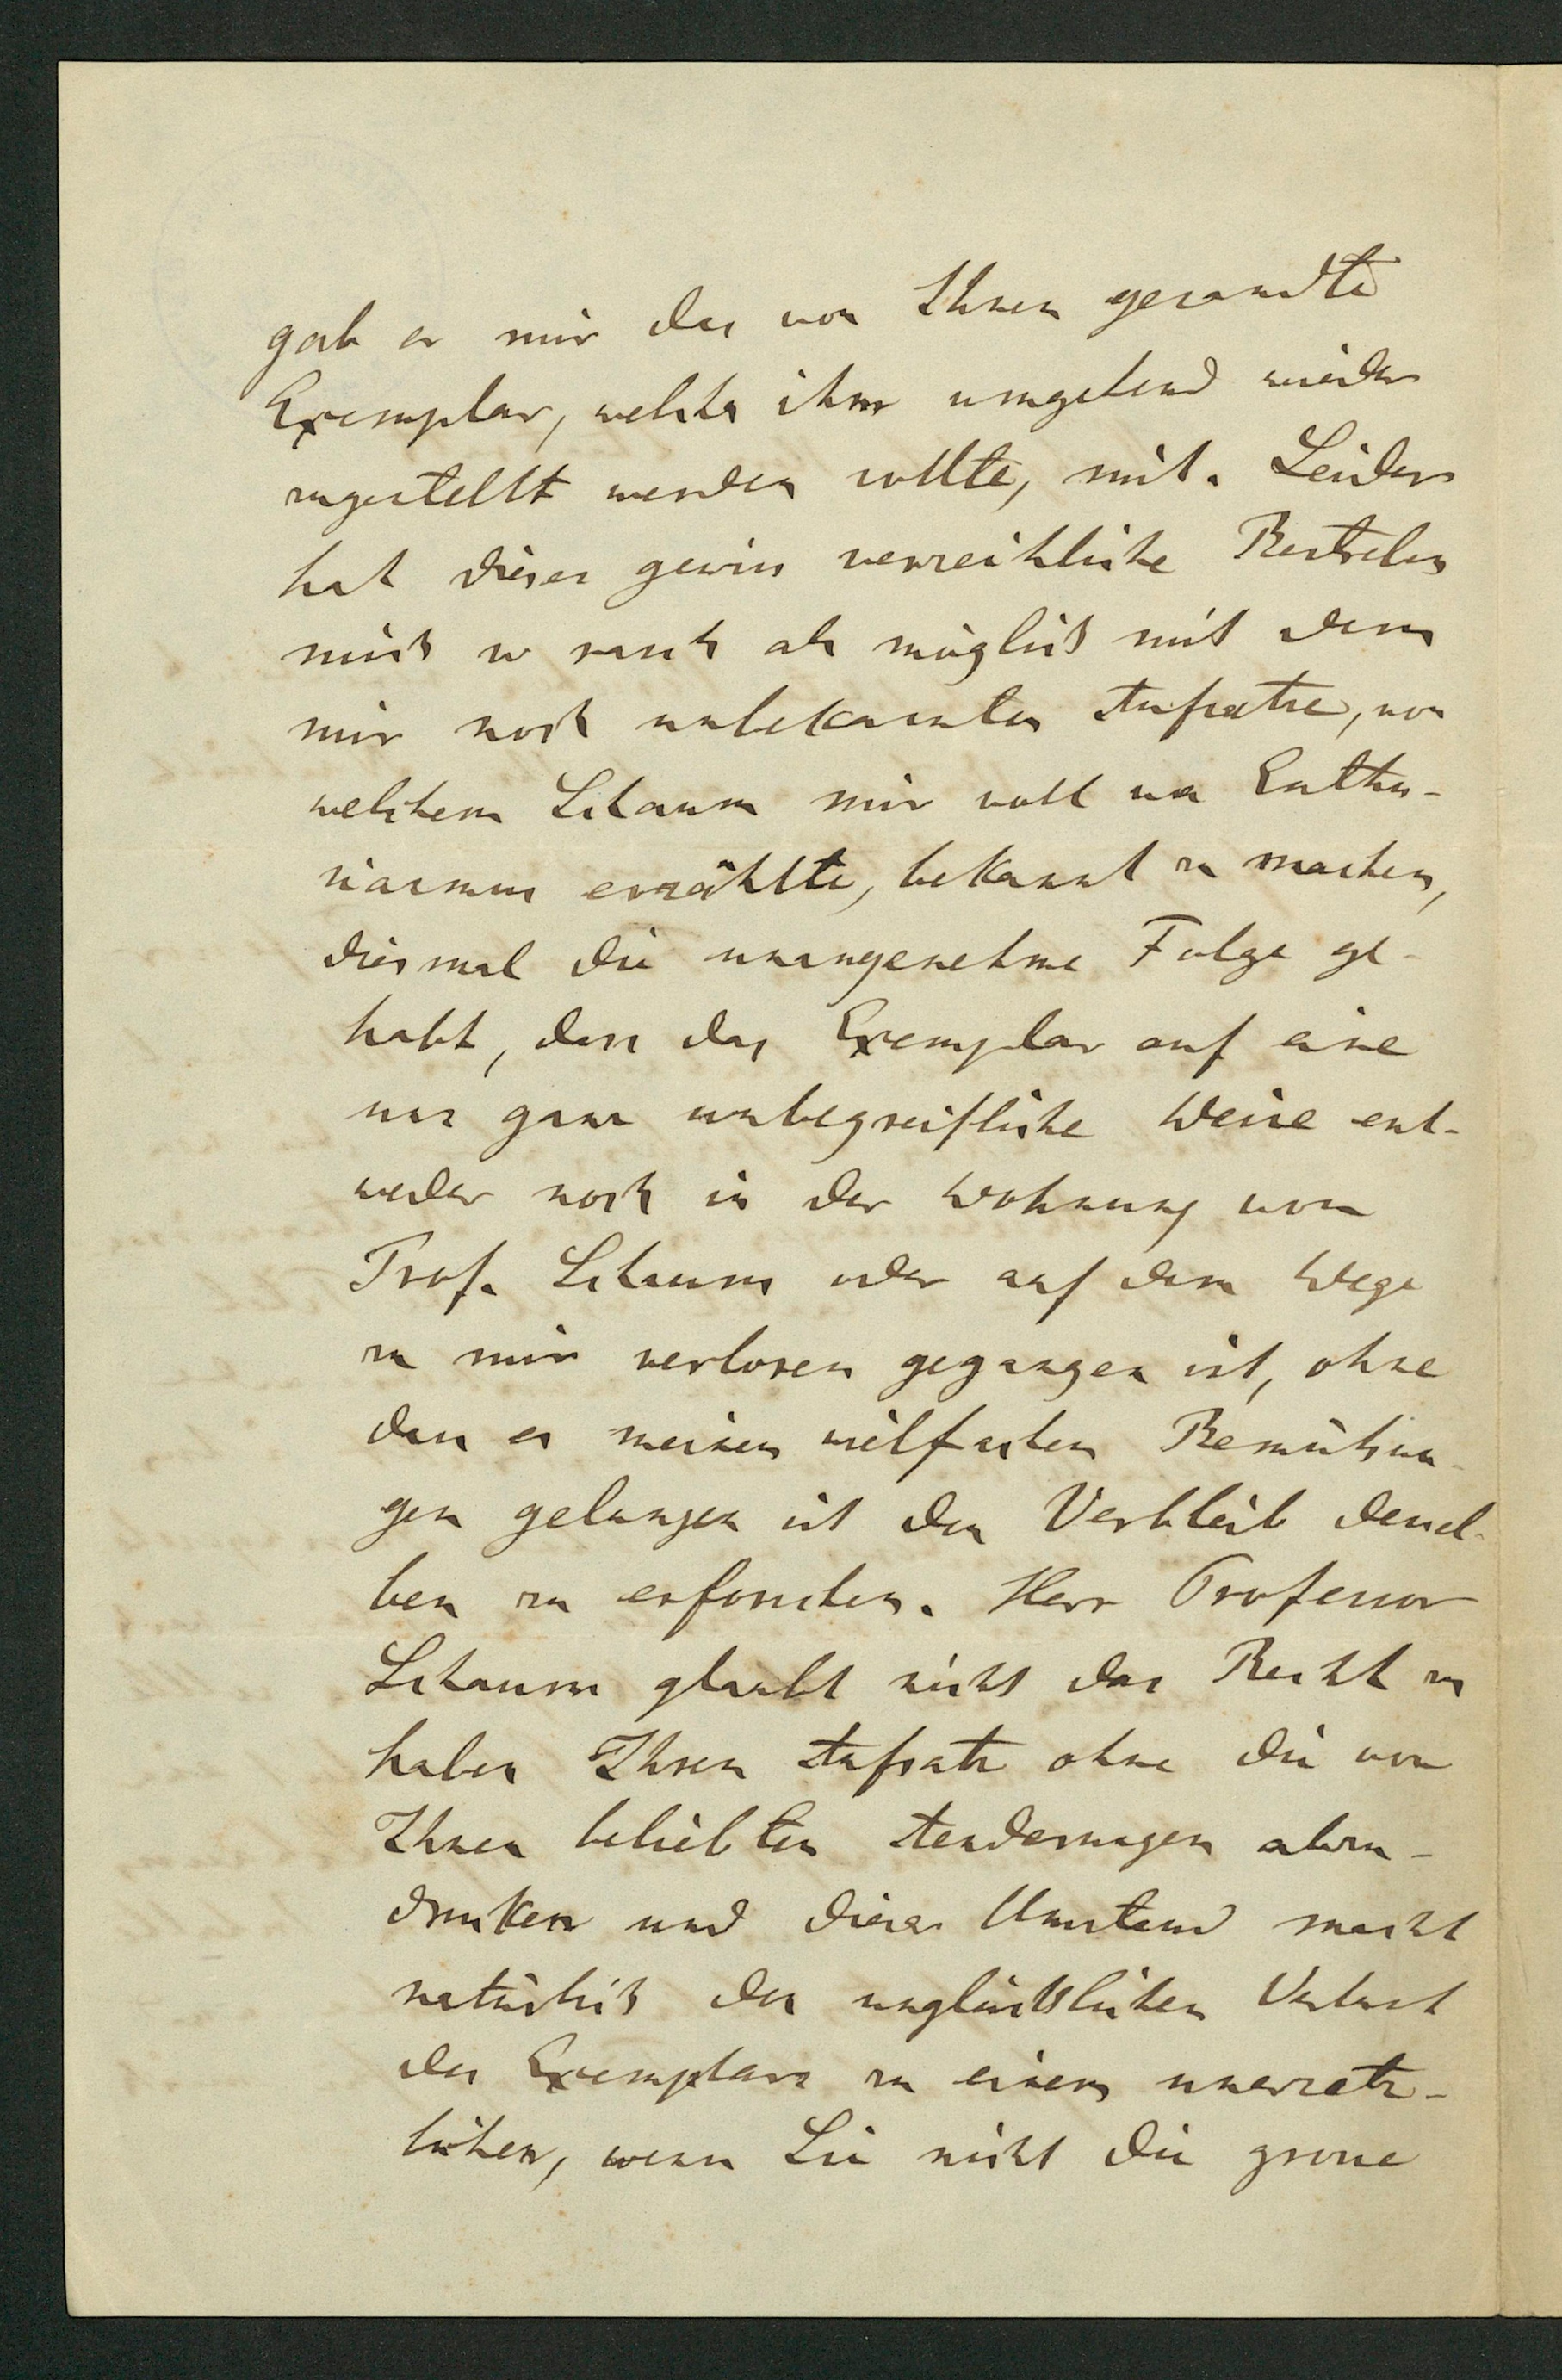 gab er mir das von Ihnen gesandte
Exemplar, welches ihm umgehend wieder
zugestellt werden sollte, mit. Leider
hat dieses gewiss verzeihliche Bestreben
mich so rasch als möglich mit dem
mir noch unbekannten Aufsatze, von
welchem Schaum mir voll von Enthu-
siasmus erzählte, bekannt zu machen,
diesmal die unangenehme Folge ge-
habt, dass das Exemplar auf eine
uns ganz unbegreifliche Weise ent-
weder noch in der Wohnung von
Prof. Schaum oder auf dem Wege
zu mir verloren gegangen ist, ohne
dass es meinen vielfachen Bemühun-
gen gelungen ist den Verbleib dessel-
ben zu erforschen. Herr Professor
Schaum glaubt nicht das Recht zu
haben Ihren Aufsatz ohne die von
Ihnen beliebten Aenderungen abzu-
drucken und dieser Umstand macht
natürlich den unglücklichen Verlust
des Exemplars zu einem unersetz-
lichen, wenn Sie nicht die grosse